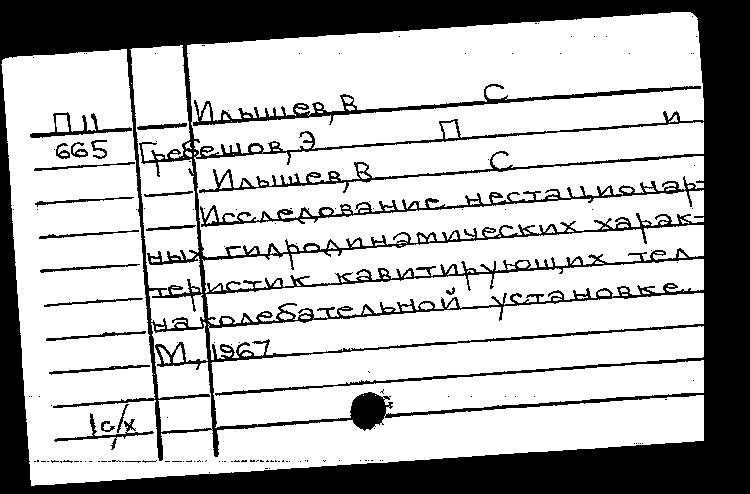 П11 Илышев, В С
665 Гребешов, Э П и
Илышев, В С
Исследование нестационар-
ных гидродинамических харак-
теристик кавитирующих тел
на колебательной установке.
М., 1967
1 с/х